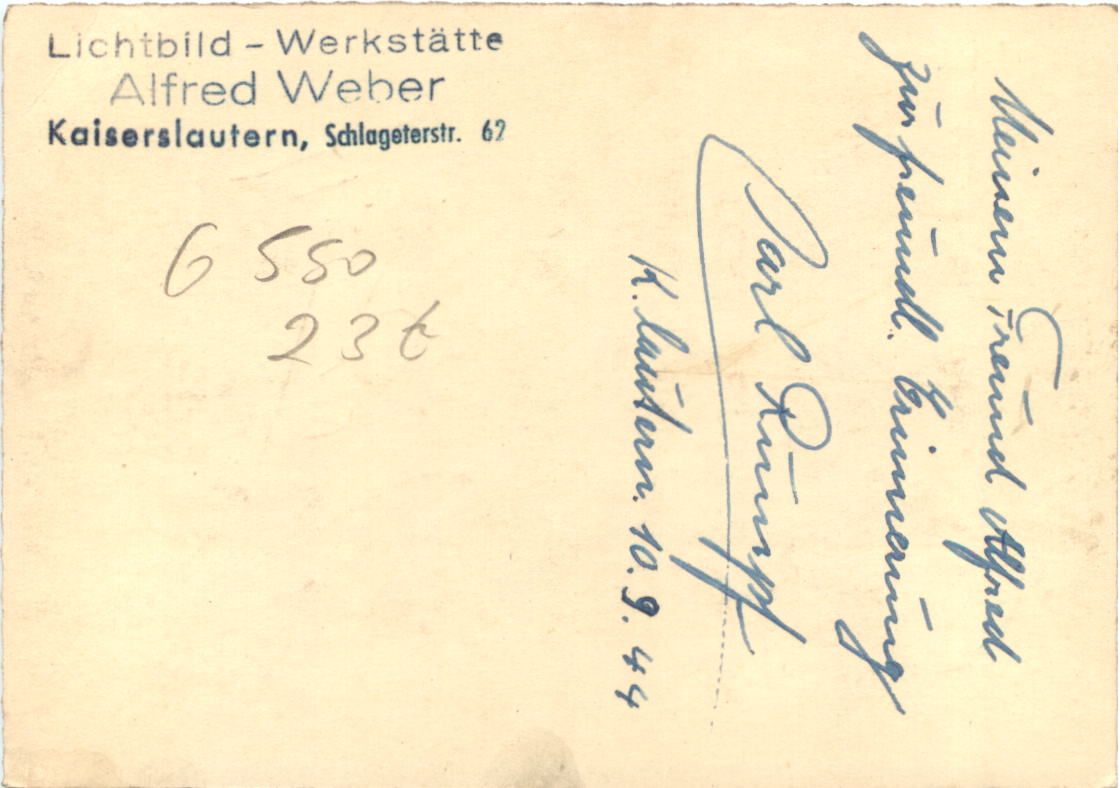 Lichtbild - Werkstätte
Alfred Weber
Kaiserslautern, Schlageterstr. 62
6 550
23 t
Meinem Freund Alfred
zur freundl. Erinnerung
Carl Rumpf
K. lautern. 10.9.44